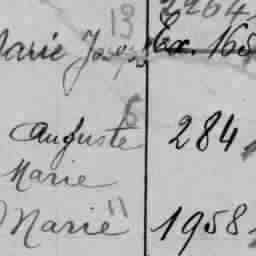 13 2264
Marie Joseph Ex. 165
5
Auguste 284
Marie
Marie 11 1958